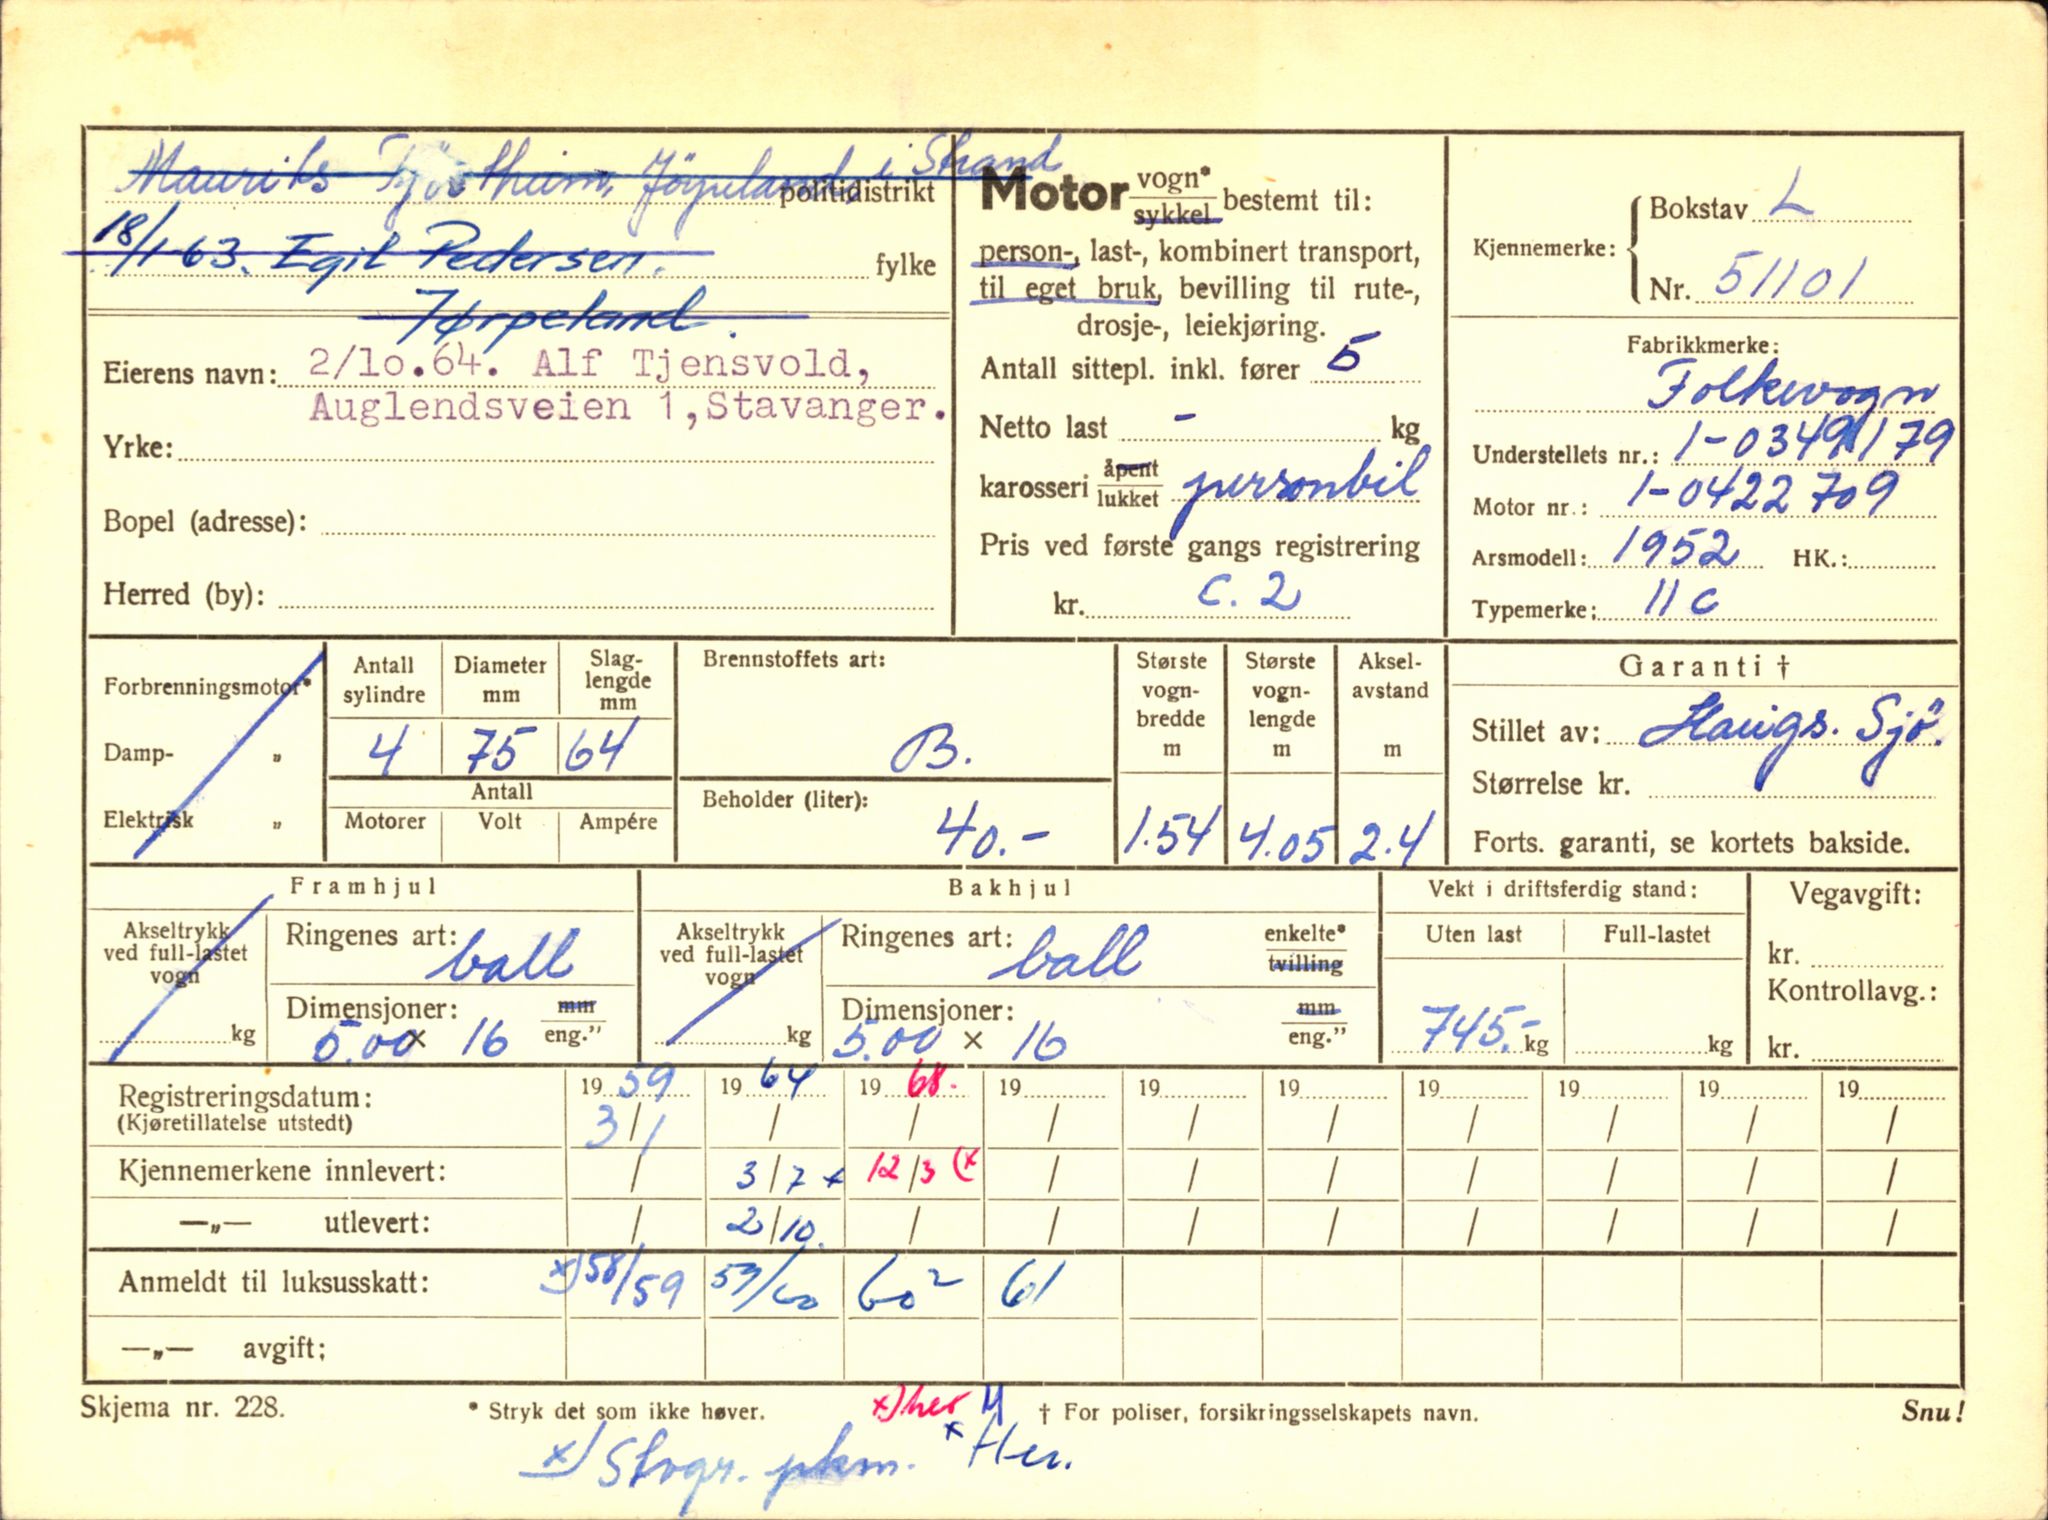 Maurits Tjöstheim, Jörpeland i Strand
politidistrikt
18/1 63. Egil Pedersen. fylke
Jørpeland.
Eierens navn: 2/10.64. Alf Tjensvold,
Auglendsveien 1, Stavanger.
Yrke:
Bopel (adresse):
Herred (by):
Motor vogn* sykkel bestemt til:
person-, last-, kombinert transport,
til eget bruk, bevilling til rute-,
drosje-, leiekjøring.
Antall sittepl. inkl. fører 5
Netto last - kg
karosseri åpent lukket personbil
Pris ved første gangs registrering
kr. C. 2
Kjennemerke: Bokstav L
Nr. 51101
Fabrikkmerke:
Folkevogn
Understellets nr.: 1-0349179
Motor nr.: 1-0422709
Arsmodell: 1952 HK.:
Typemerke: 11 C
Forbrenningsmotor*
Damp- „
Elektrisk „
Antall sylindre Diameter mm Slag-lengde mm
4 75 64
Antall
Motorer Volt Ampére
Brennstoffets art:
B.
Beholder (liter):
40.-
Største vogn-bredde m Største vogn-lengde m Aksel-avstand m
1.54 4.05 2.4
Garanti †
Stillet av: Haugs. Sjö.
Størrelse kr.
Forts. garanti, se kortets bakside.
Framhjul
Akseltrykk
ved full-lastet
vogn
kg
Ringenes art: ball
Dimensjoner: mm
5.00 x 16 eng."
Bakhjul
Akseltrykk
ved full-lastet
vogn
kg
Ringenes art: ball enkelte* tvilling
Dimensjoner: mm
5.00 x 16 eng."
Vekt i driftsferdig stand:
Uten last Full-lastet
745.- kg kg
Vegavgift:
kr.
Kontrollavg.:
kr.
Registreringsdatum: 19 59 19 64 19 68. 19 19 19 19 19 19 19
(Kjøretillatelse utstedt) 3/1 / / / / / / / / /
Kjennemerkene innlevert: / 3/7 x 12/3 (x / / / / / / /
—„— utlevert: / 2/10. / / / / / / / /
Anmeldt til luksusskatt: x) 58/59 59/60 60² 61
—„— avgift:
Skjema nr. 228. * Stryk det som ikke høver. x) her † For poliser, forsikringsselskapets navn. Snu!
x) Stvgr. pkm. x Her.